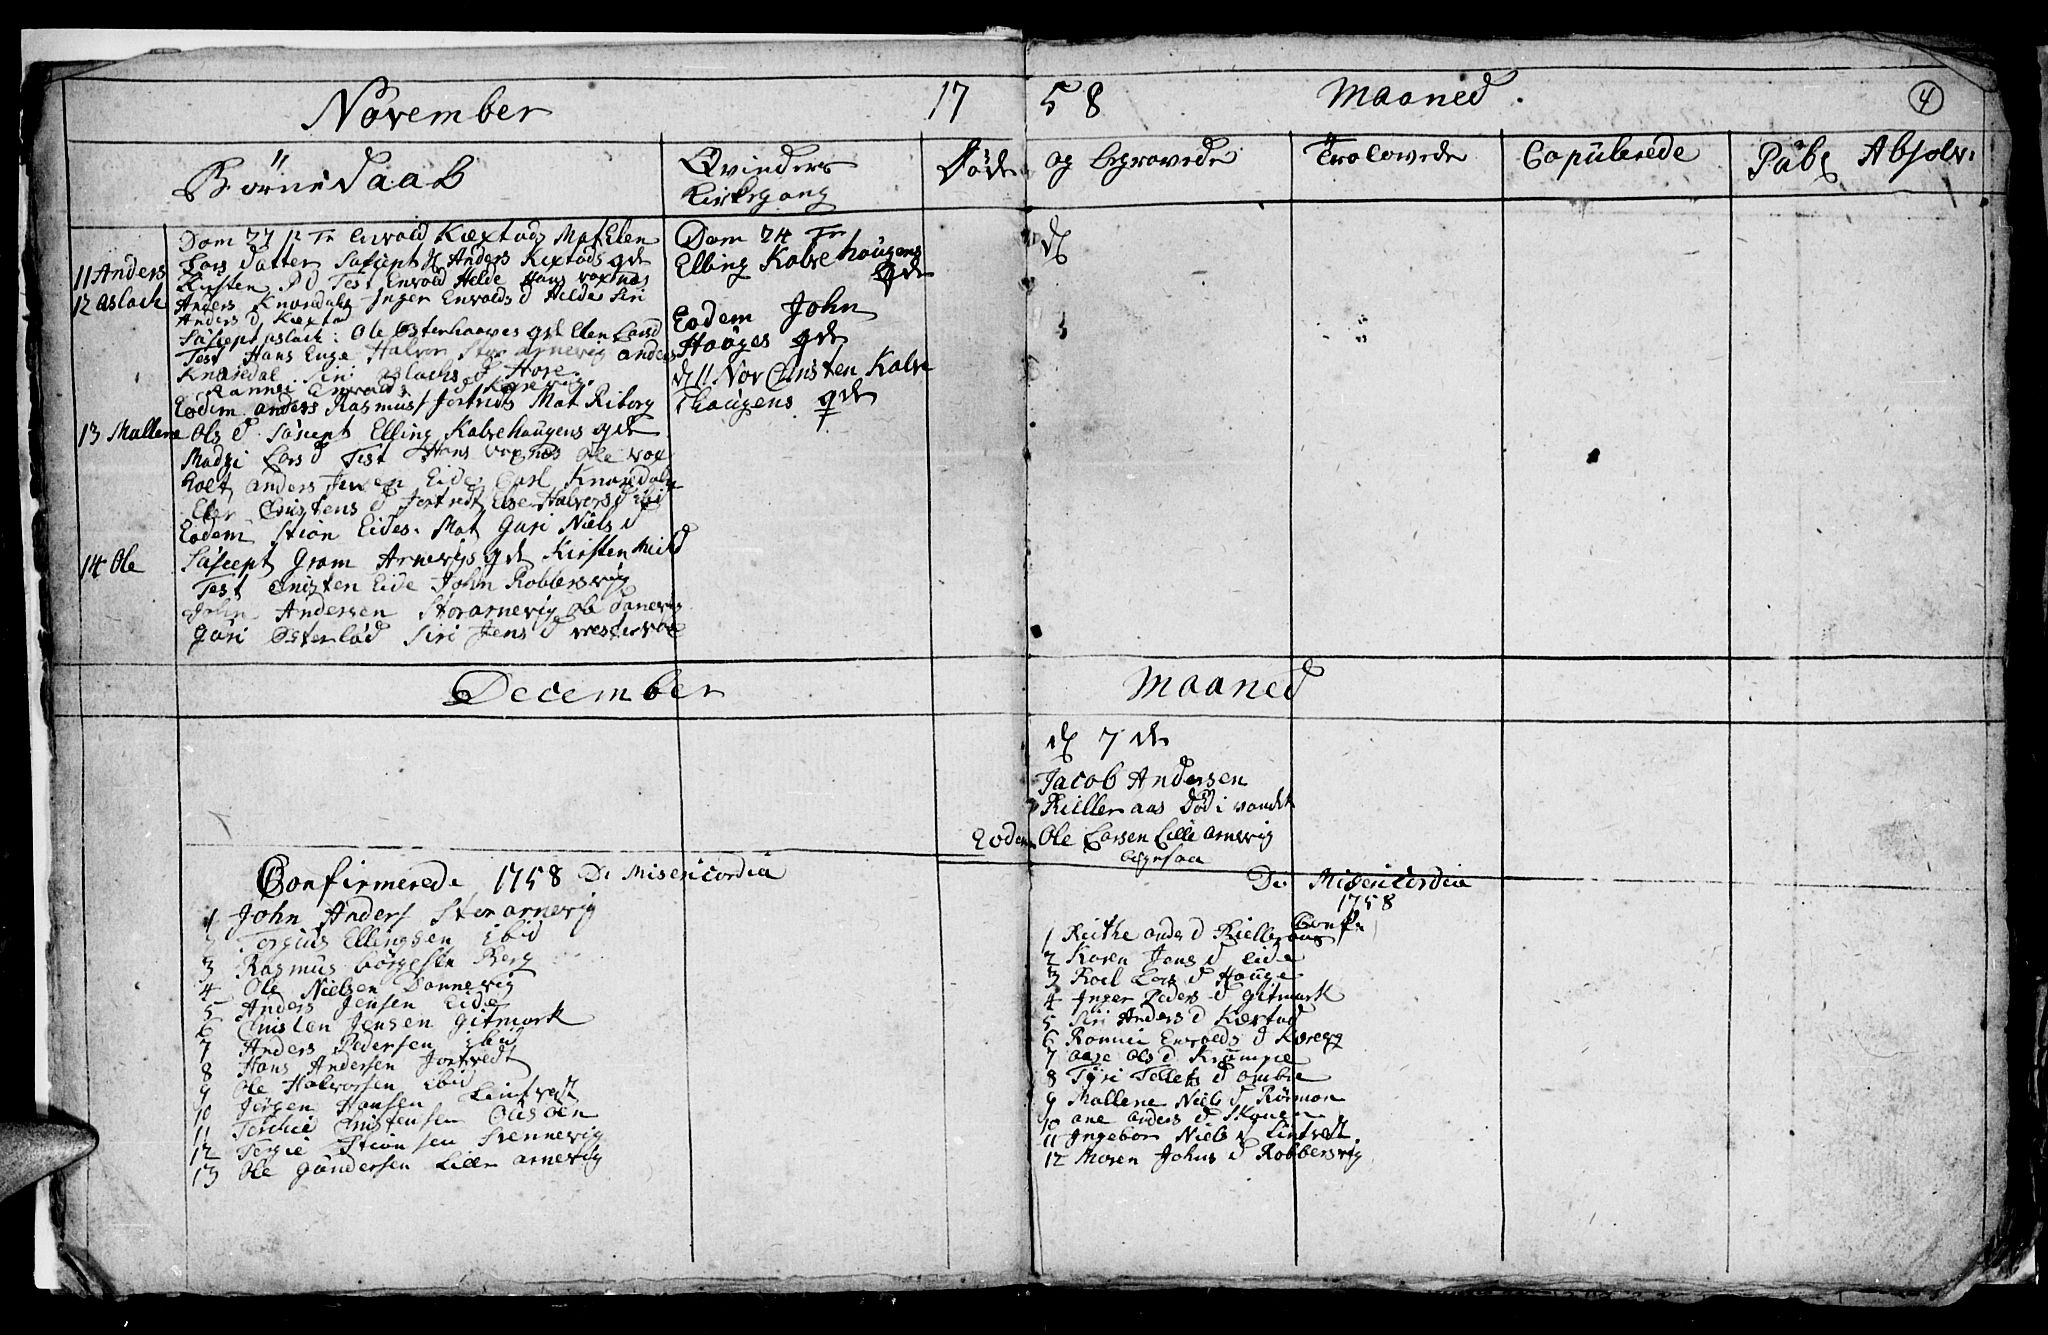 November 1758 Maaned. 4
Börne Daab
Qvinders Kirkegang
Döde og begravede
Trolovede
Copulerede
Publ Absolv:
11 Anders
12 Aslach
Dom 22 p Tr Envold Kixtads Mat Elen
Lars datter Suscept Anders Kixtads qde
Kirsten Test Envold Helde Hans voxnæs
Anders Knardahl Inger Envolds d Helde Siri
Anders d Kixtad
Suscept Aslach: Ole Østerhaaves qde Elen Lars d
Test Hans Enge Halvor Stor arnevig anders
Knaredal Siri Aslachs d Hore
Ranni Envolds d Karevig.
Eodem anders Rasmus Jortvedts Mat Riborg
13 Mallene Ols d Suscept Elling Kalvehaugens qde
Madzi Lars d Test Hans voxnæs Ole vox
holt Anders Jensen Eide Carl Knaredahl
Elen Christens d Jortvedt Else Halvors d ibid
Eodem Stion Eides. Mat Guri Niels d
14 Ole
Suscept Gram Arnevigs qde Kirsten Nield
Test Cristen Eide John Robbersvig
John Andersen Storarnevig Ole Donevig
Guri Østerlod Siri Jens d vestervox
Dom 24 Tr
Elling Kalvehaugens
qde
Eodem John
Hauges qde
d 11 Nov Christen Kalve
haugens qde
d
December Maaned
d 7 de
Jacob Andersen
Killeraas Död i vandet
Eodem Ole Larsen Lille arnevig
ligesaa
Confirmerede 1758 D: Misericordia
1 John Anders Storarnevig
2 Torgius Ellingsen ibid
3 Rasmus Börgesen Berg
4 Ole Nielsen Donnevig
5 Anders Jensen Eide
6 Cristen Jensen Gitmark
7 Anders Pedersen ibid
8 Hans Andersen Jortvedt
9 Ole Halvorsen ibid
10 Jörgen Hansen Lintvedt
11 Terchie Cristensen Olisöen
12 Tergie Stionsen Stennevig
13 Ole Gundersen Lille arnevig
D: Misericordia
1758
Conf:
1 Ruthe anders d Killeraas
2 Karen Jens d Eide
3 Roel Lars d Hauge
4 Inger Peders d Gitmark
5 Siri Anders d Kixtad
6 Rannei Envolds d Karevig
7 Aase Ols d Krumpie
8 Tyri Tellefs d ombie
9 Mallene Niels d Römmon
10 ane anders d Skouen
11 Ingebor Niels d Lintvedt.
12 Maren Johns d Robbersvig